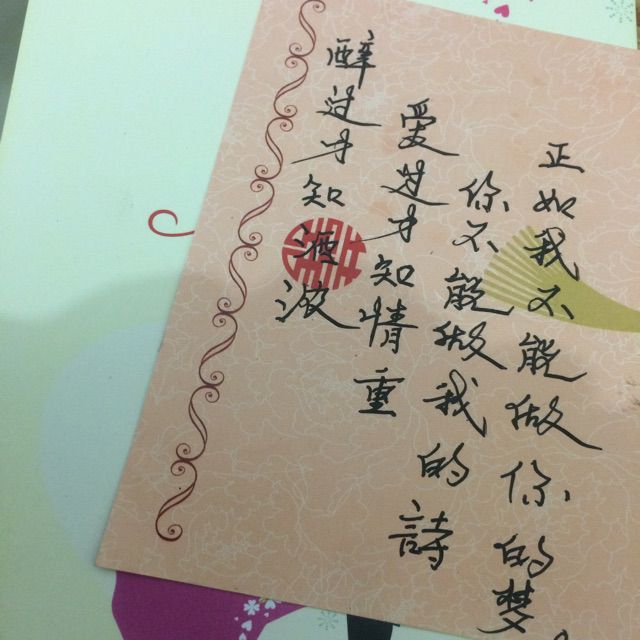 醉过才知酒浓
爱过才知情重
你不能做我的詩
正如我不能做你的梦